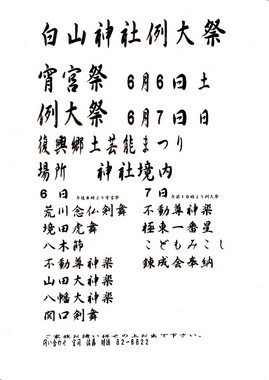 白山神社例大祭
宵宮祭 6月6日 土
例大祭 6月7日 日
復興郷土芸能まつり
場所 神社境内
6日 午後6時より宵宮祭
荒川念仏剣舞
境田虎舞
八木節
不動尊神楽
山田大神楽
八幡大神楽
関口剣舞
7日 午前10時より例大祭
不動尊神楽
極東一番星
こどもみこし
錬成会奉納
ご家族お誘い併せの上お出で下さい。
問い合わせ 宮司 佐藤 82-6822